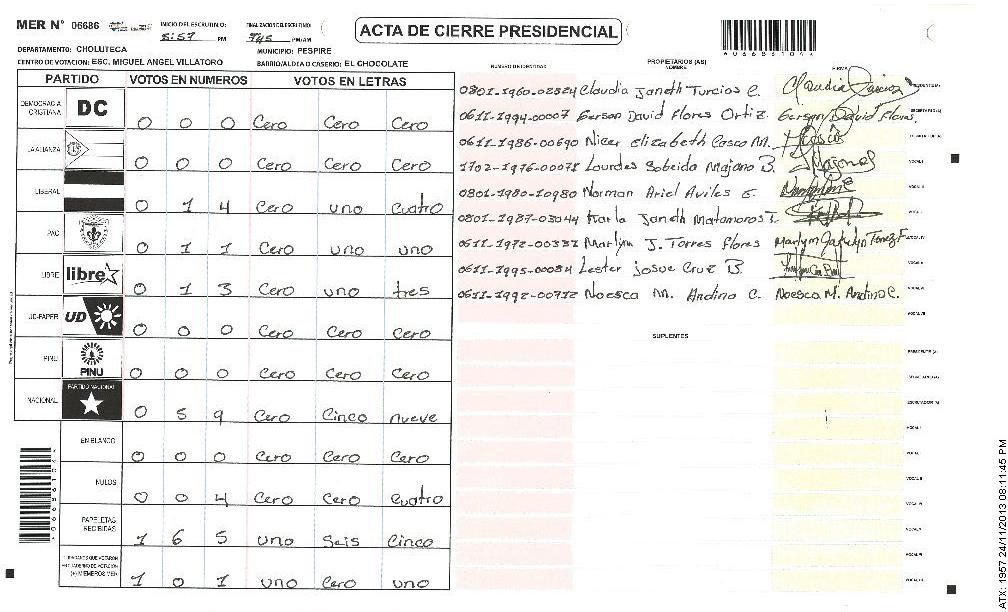 MER N° 06686 INICIO DEL ESCRUTINIO: FINALIZACION DEL ESCRUTINIO:
5:57 PM 7:45 PM/AM
ACTA DE CIERRE PRESIDENCIAL
DEPARTAMENTO: CHOLUTECA MUNICIPIO: PESPIRE
CENTRO DE VOTACION: ESC. MIGUEL ANGEL VILLATORO BARRIO/ALDEA O CASERIO: EL CHOCOLATE
PARTIDO VOTOS EN NUMEROS VOTOS EN LETRAS
DEMOCRACIA CRISTIANA DC 0 0 0 Cero Cero Cero
LA ALIANZA 0 0 0 Cero Cero Cero
LIBERAL 0 1 4 Cero uno cuatro
PAC 0 1 1 Cero uno uno
LIBRE libre 0 1 3 Cero uno tres
UD-FAPER UD 0 0 0 Cero Cero Cero
PINU PINU 0 0 0 Cero Cero Cero
NACIONAL PARTIDO NACIONAL 0 5 9 Cero Cinco nueve
EN BLANCO 0 0 0 Cero Cero Cero
NULOS 0 0 4 Cero Cero cuatro
PAPELETAS RECIBIDAS 1 6 5 uno Seis Cinco
CIUDADANOS QUE VOTARON (+) MIEMBROS MER 1 0 1 uno Cero uno
NUMERO DE IDENTIDAD PROPIETARIOS (AS) NOMBRE FIRMA
0801-1960-02824 Claudia Janeth Turcios C.
0611-1994-00007 Gerson David Flores Ortiz Gerson David Flores
0611-1986-00690 Nicer Elizabeth Casco M.
1702-1976-00071 Lourdes Sobeida Majano B. Majano
0801-1980-10980 Norman Ariel Aviles E.
0801-1987-03044 Karla Janeth Matamoros
0611-1972-00337 Marlyn J. Torres Flores
0611-1995-00084 Lester Josue Cruz B.
0611-1992-00712 Noesca M. Andino C. Noesca M. Andino C.
SUPLENTES
PRESIDENTE (A)
SECRETARIO (A)
ESCRUTADOR (A)
VOCAL I
ATX: 1957 24/11/2013 08:11:45 PM